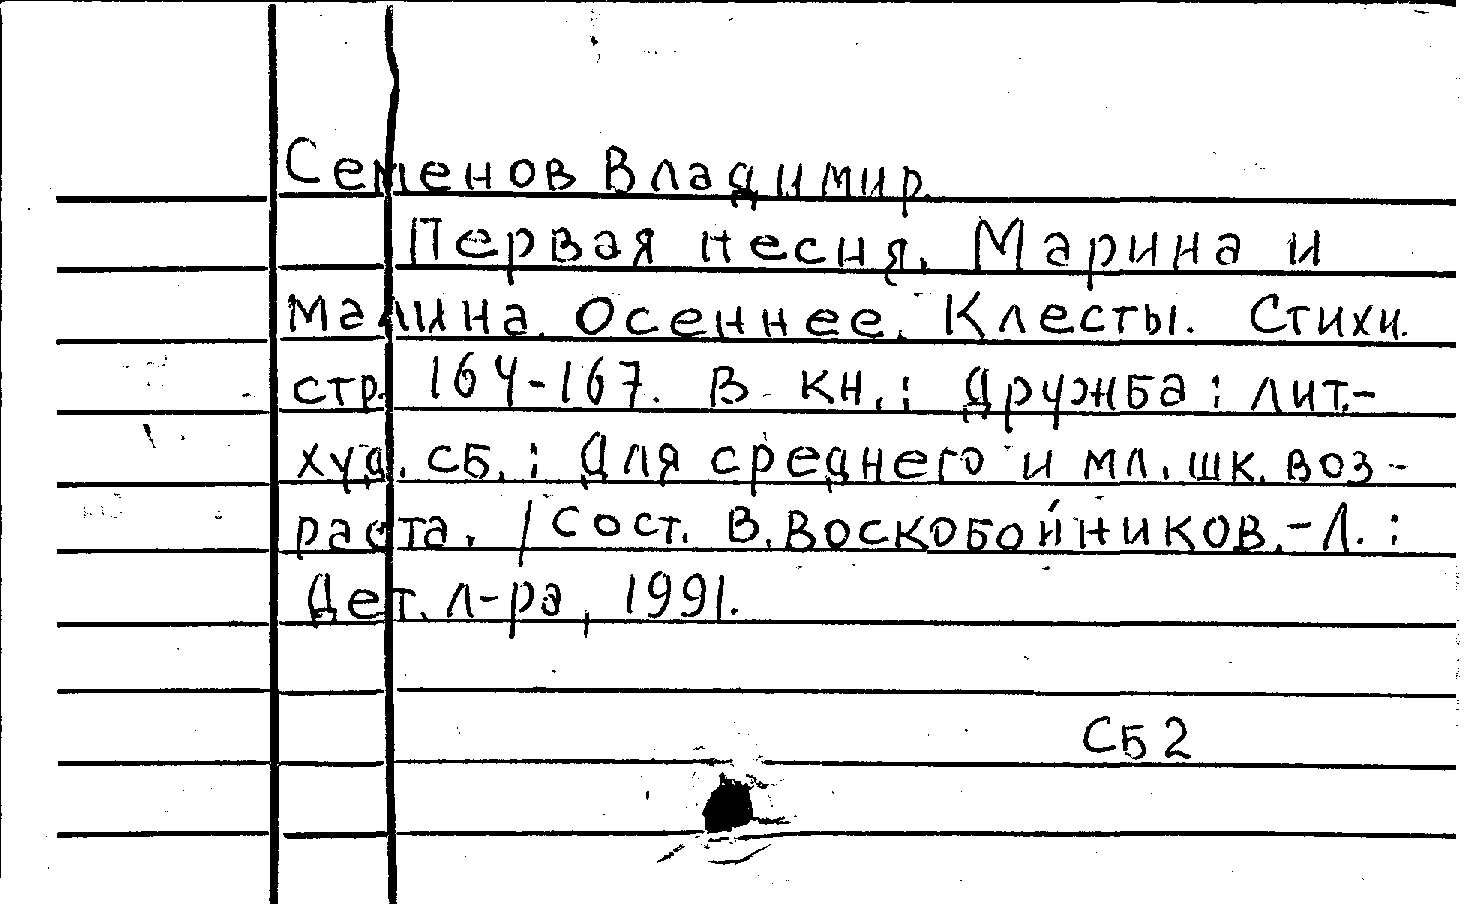 Семенов Владимир.
Первая песня. Марина и
малина. Осеннее. Клесты. Стихи.
стр. 164-167. В кн.: Дружба: лит.-
худ. сб.: Для среднего и мл. шк. воз-
раста. / Сост. В. Воскобойников.-Л.:
Дет. л-ра, 1991.
СБ 2